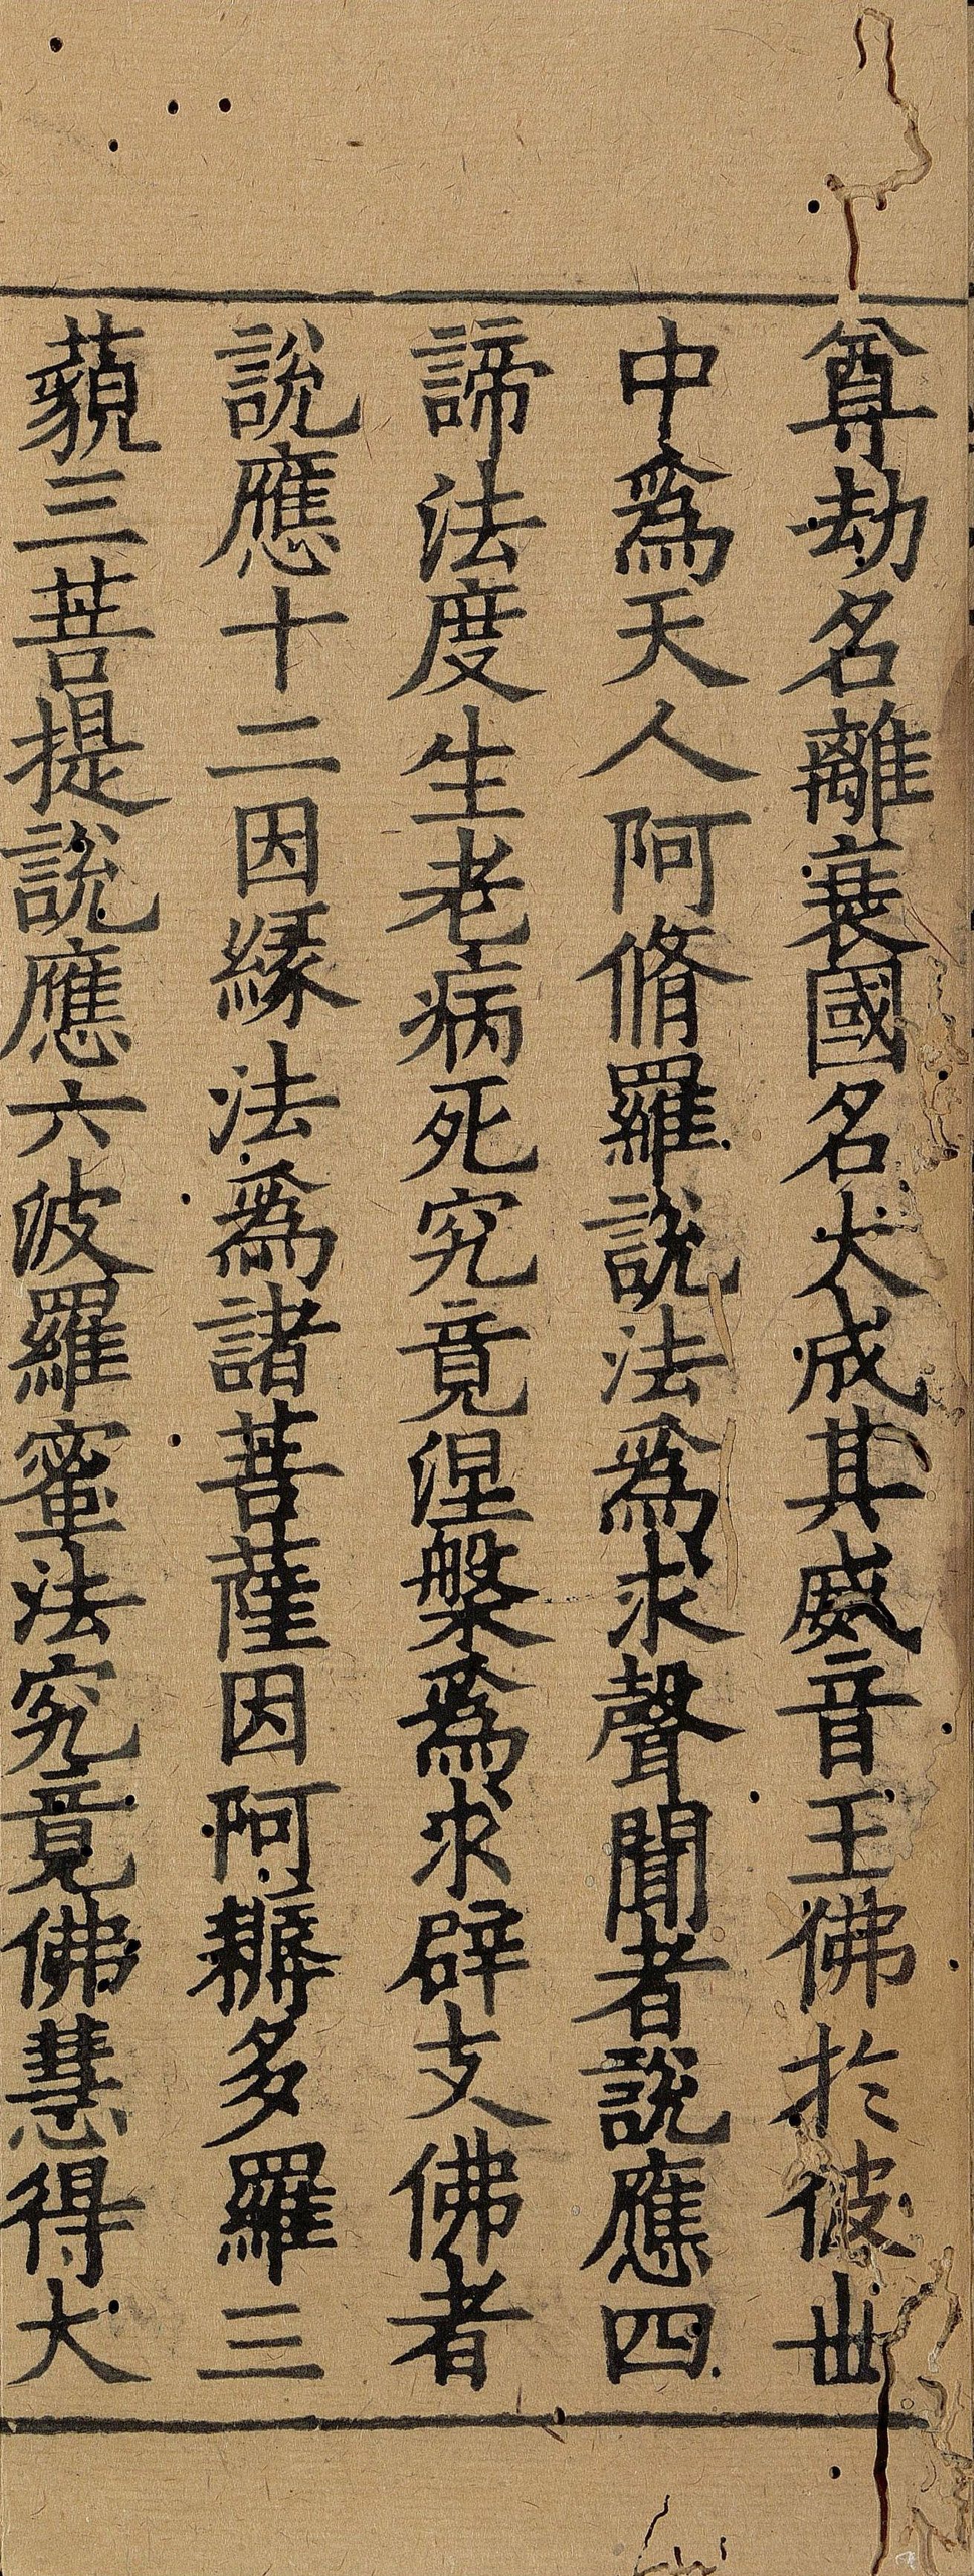 尊劫名離衰國名大成其威音王佛於彼世
中爲天人阿脩羅說法爲求聲聞者說應四
諦法度生老病死究竟涅槃爲求辟支佛者
說應十二因縁法爲諸菩薩因阿耨多羅三
藐三菩提說應六波羅蜜法究竟佛慧得大